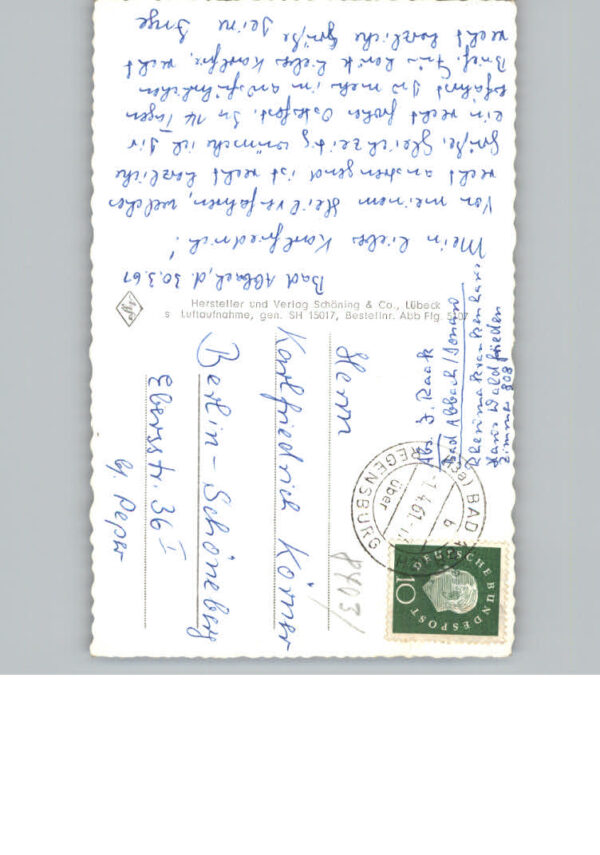 Bad Abbach, d. 30.3.61
Mein lieber Karlfriedrich!
Von meinem Heilverfahren, welches
recht anstrengend ist recht herzliche
Grüße. Gleichzeitig wünsche ich Dir
ein recht frohes Osterfest. In 14 Tagen
erfährst Du mehr im ausführlichen
Brief. Für heute lieber Karlfr. recht
recht herzliche Grüße Deine Inge
Agfa
Hersteller und Verlag Schöning & Co., Lübeck
s Luftaufnahme, gen. SH 15017, Bestellnr. Abb Flg. 5107
Abs. I. Raak
Bad Abbach/Donau
Rheumakrankenhaus
Haus Waldfrieden
Zimmer 808
BAD
über
REGENSBURG
b
-1.4.61.-1
DEUTSCHE BUNDESPOST
10
8403/
Herrn
Karlfriedrich Körner
Berlin-Schöneberg
Ebersstr. 36 I
bj. Peper